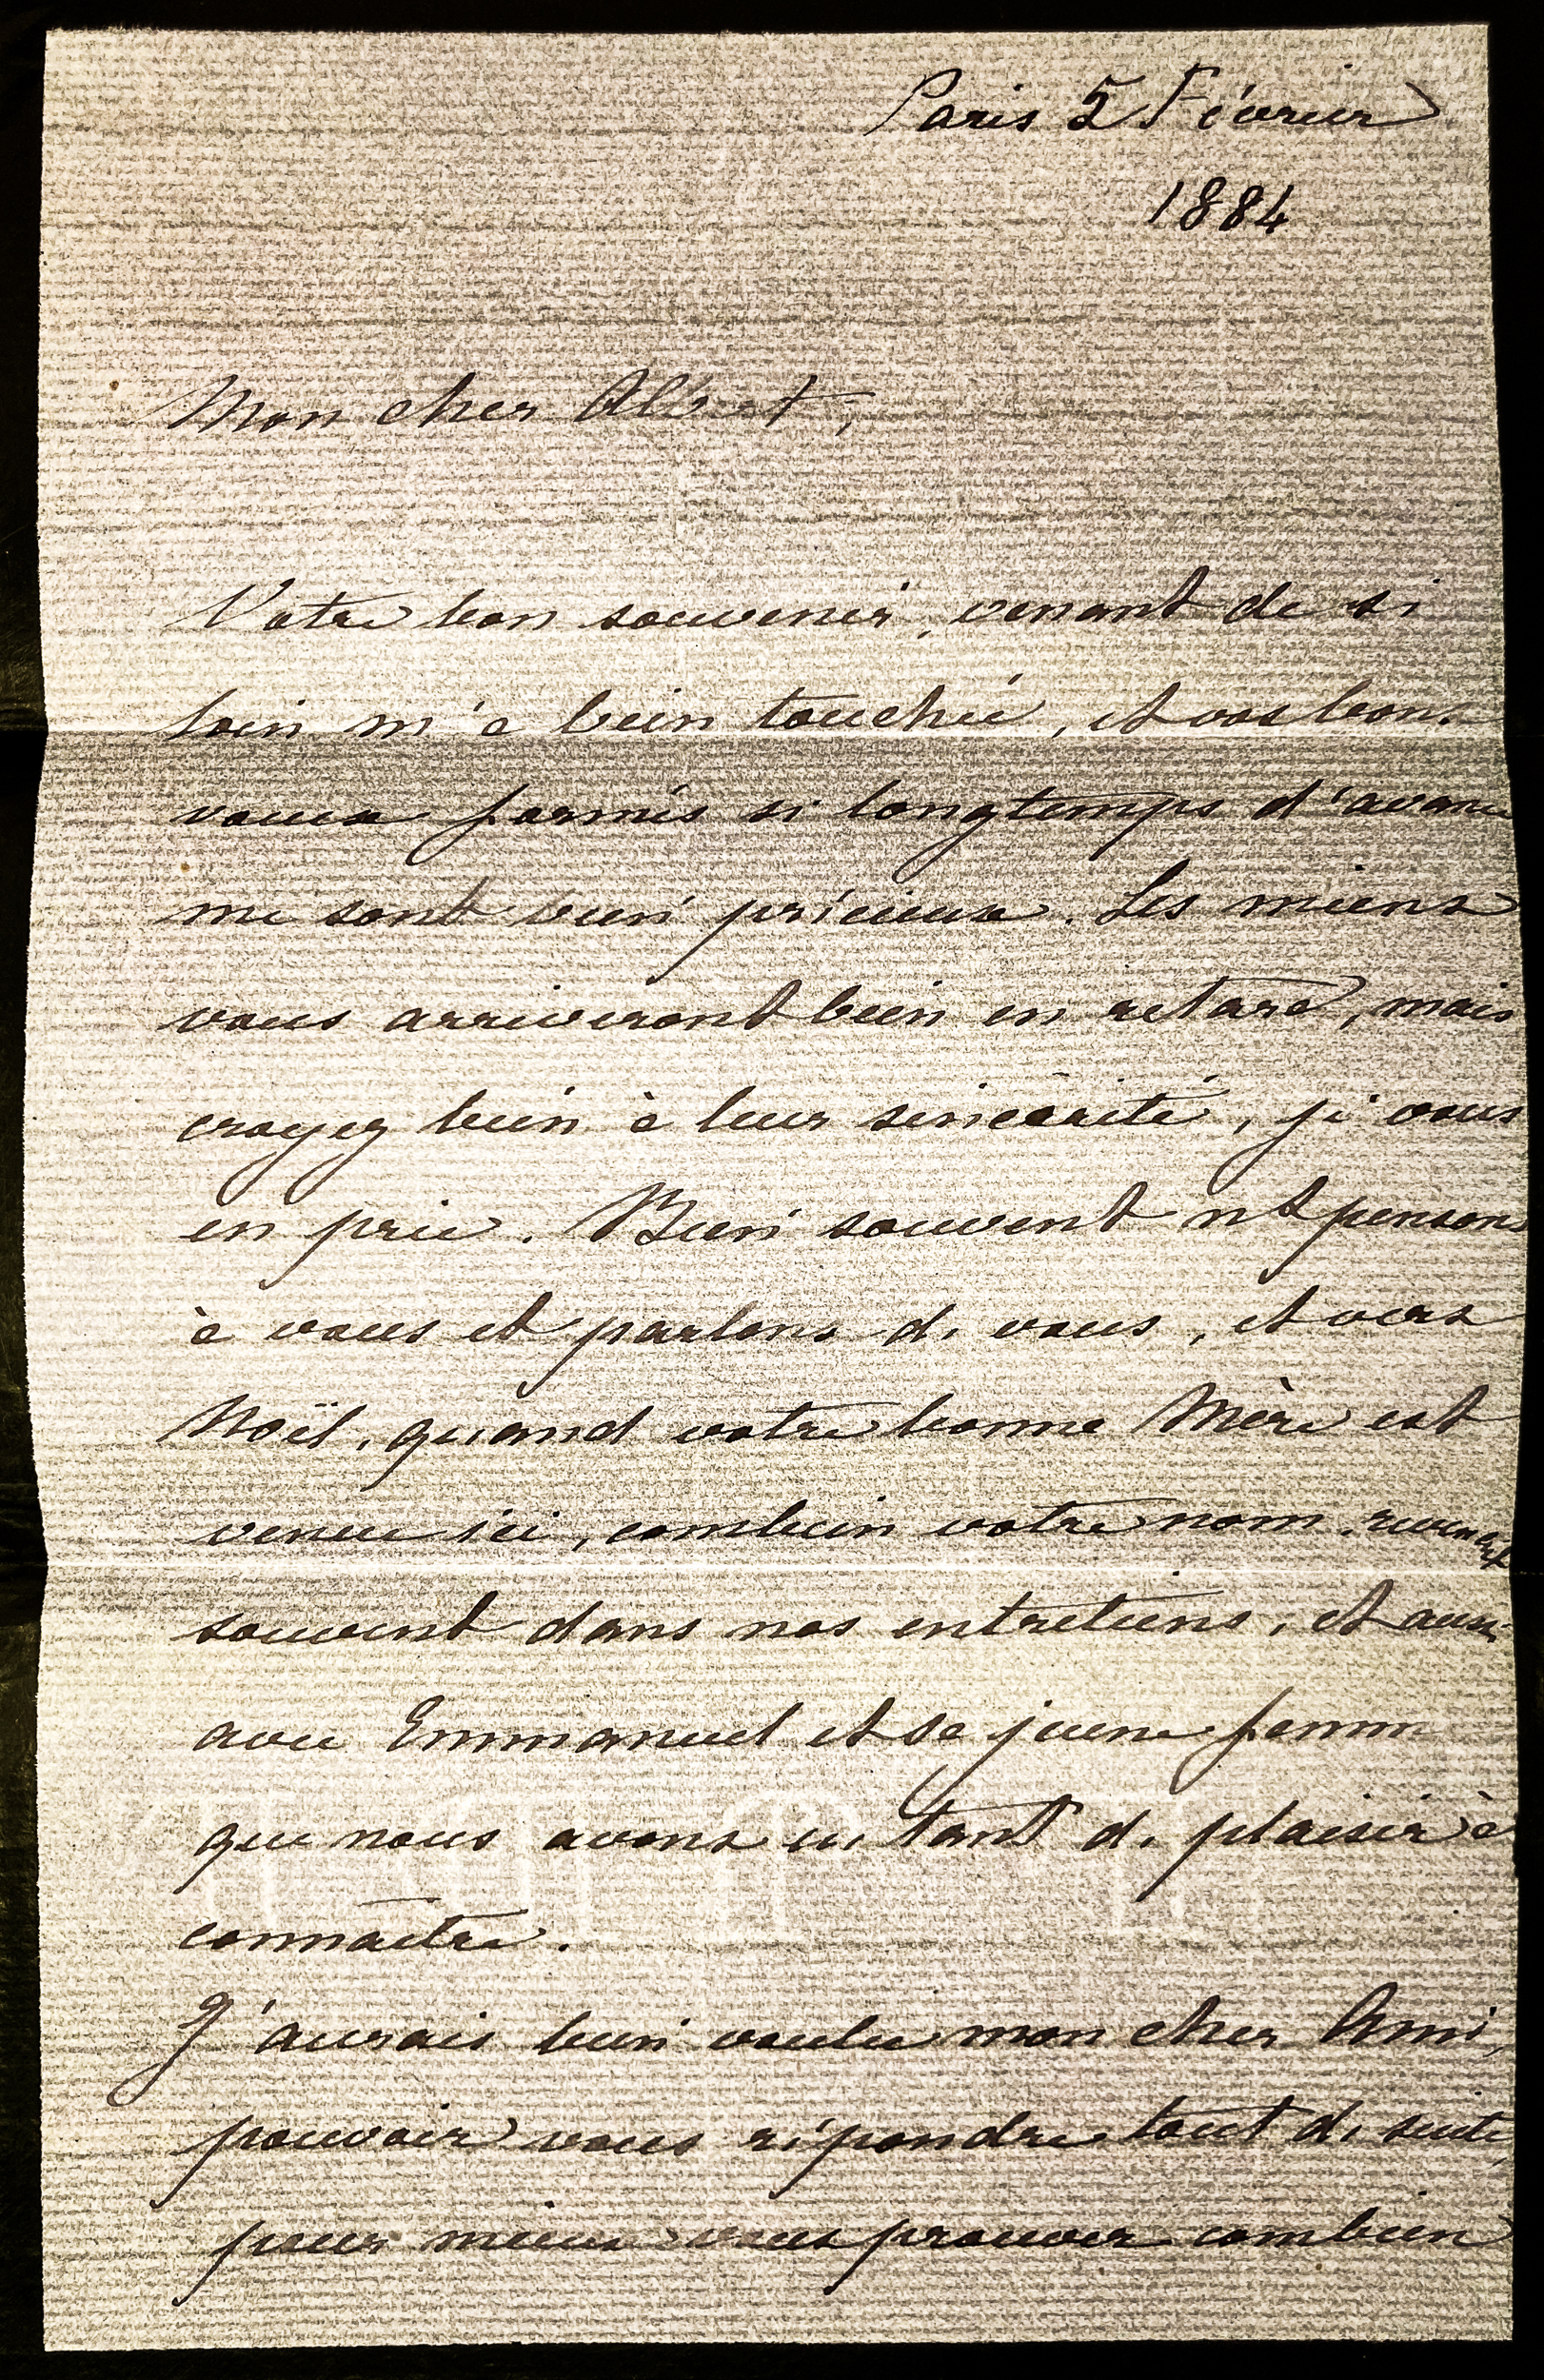 Paris 5 Février
1884
Mon cher Albert,
Votre bon souvenir, venant de si
loin m'a bien touché, et vos bons
vœux formés si longtemps d'avance
me sont bien précieux. Les miens
vous arriveront bien en retard, mais
croyez bien à leur sincérité, je vous
en prie. Bien souvent ns pensons
à vous et parlons de vous, et vers
Noël, quand votre bonne Mère est
venue ici, combien votre nom revenait
souvent dans nos entretiens, et aussi
avec Emmanuel et sa jeune femme
que nous avons eu tant de plaisir à
connaître.
J'aurais bien voulu mon cher Ami,
pouvoir vous répondre tout de suite,
pour mieux vous prouver combien